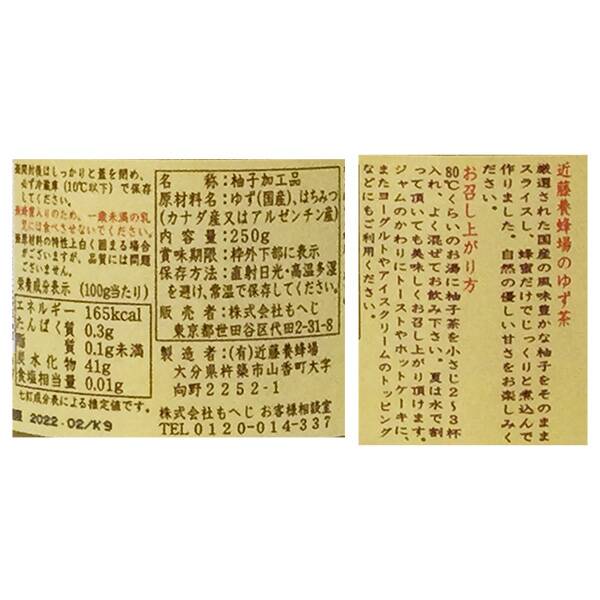 開封後はしっかりと蓋を閉め、
必ず冷蔵庫(10℃以下)で保存
してください。
蜂蜜入りのため、一歳未満の乳
児には食べさせないでください。
原材料の特性上白く固まる場合
がございますが、品質には問題
ございません。
栄養成分表示(100g当たり)
エネルギー 165kcal
たんぱく質 0.3g
脂質 0.1g未満
炭水化物 41g
食塩相当量 0.01g
七訂成分表による推定値です。
2022.02/K9
名称:柚子加工品
原材料名:ゆず(国産)、はちみつ
(カナダ産又はアルゼンチン産)
内容量:250g
賞味期限:枠外下部に表示
保存方法:直射日光・高温多湿
を避け、常温で保存してください。
販売者:株式会社もへじ
東京都世田谷区代田2-31-8
製造者:(有)近藤養蜂場
大分県杵築市山香町大字
向野2252-1
株式会社もへじ お客様相談室
TEL0120-014-337
近藤養蜂場のゆず茶
厳選された国産の風味豊かな柚子をそのまま
スライスし、蜂蜜だけでじっくりと煮込んで
作りました。自然の優しい甘さをお楽しみく
ださい。
お召し上がり方
80℃くらいのお湯に柚子茶を小さじ2~3杯
入れ、よく混ぜてお飲み下さい。夏は水で割
って頂いても美味しくお召し上がり頂けます。
ジャムのかわりにトーストやホットケーキに、
またヨーグルトやアイスクリームのトッピング
などにもご利用ください。